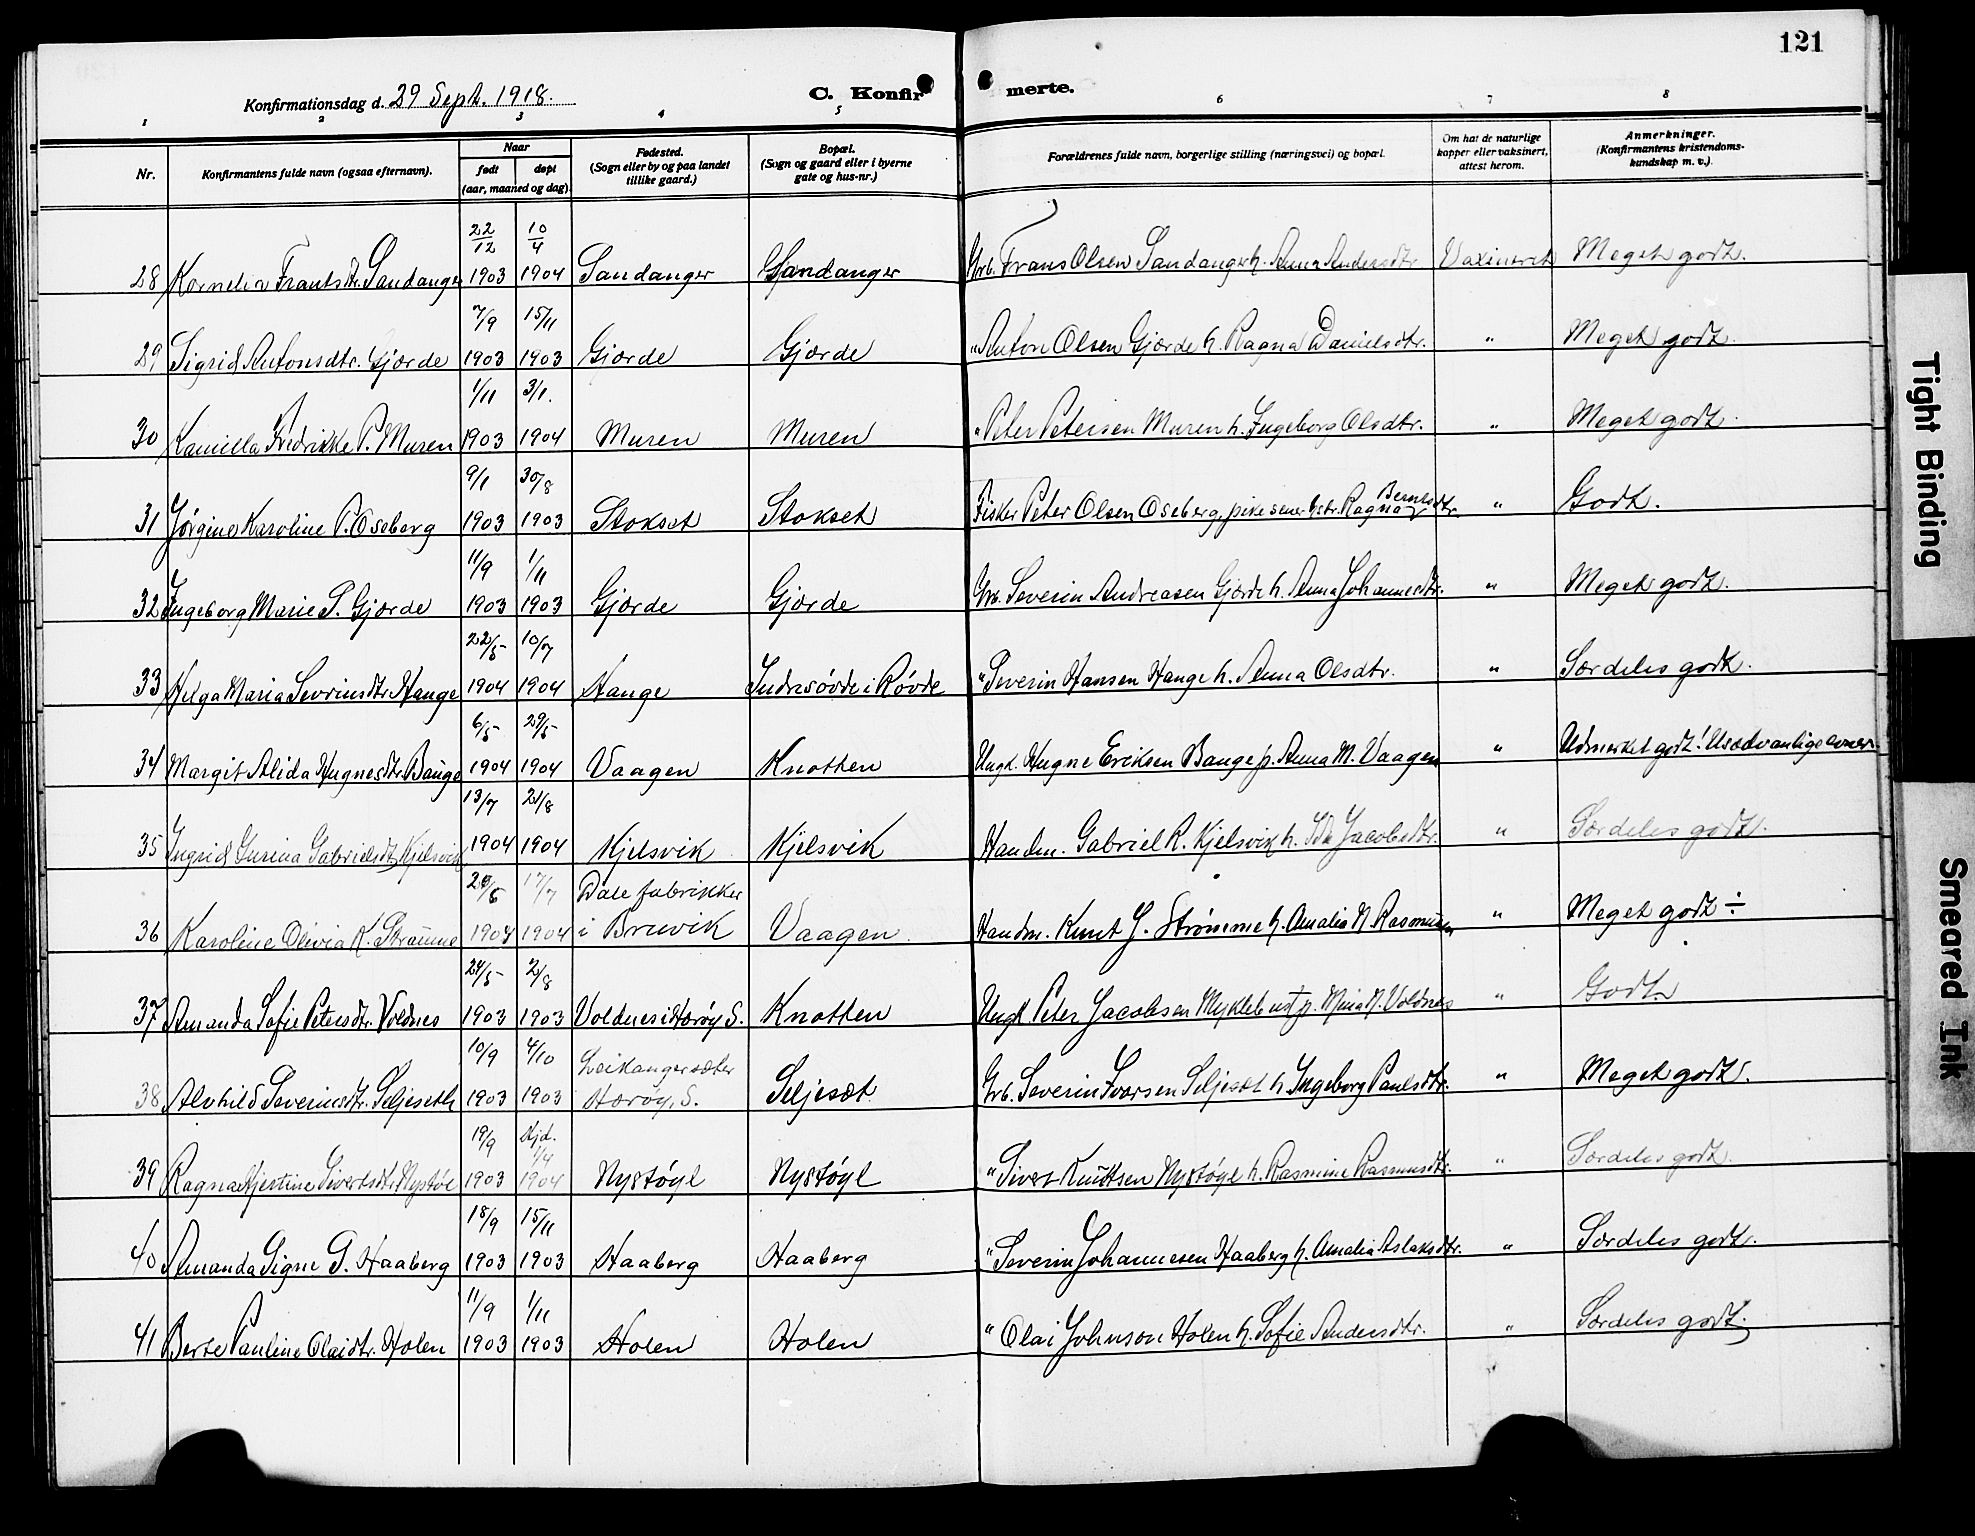 121
Konfirmationsdag d. 29 Sept. 1918.
C. Konfir merte.
1 2 3 4 5 6 7 8
Nr.
Konfirmantens fulde navn (ogsaa efternavn).
Naar
født døpt
(aar, maaned og dag).
Fødested.
(Sogn eller by og paa landet
tillike gaard.)
Bopæl.
(Sogn og gaard eller i byerne
gate og hus-nr.)
Forældrenes fulde navn, borgerlige stilling (næringsvei) og bopæl.
Om hat de naturlige
kopper eller vaksinert,
attest herom.
Anmerkninger.
(Konfirmantens kristendoms-
kundskap m. v.).
22/12 10/4
28 Kornelia Frantsdtr. Sandanger 1903 1904 Sandanger Sandanger Grb. Frans Olsen Sandanger h. Anna Andersdtr Vaxineret Meget godt.
7/9 15/11
29 Sigrid Antonsdtr. Gjærde 1903 1903 Gjærde Gjærde " Anton Olsen Gjærde h. Ragna Danielsdtr. " Meget godt.
1/11 3/1.
30 Kamilla Fredrikke P. Muren 1903 1904 Muren Muren " Peter Petersen Muren h. Ingeborg Olsdtr. " Meget godt.
9/1 30/8
31 Jørgine Karoline P. Oseberg 1903 1903 Stokset Stokset Fisker Peter Olsen Oseberg, pike sener hstr. Ragna Berntsdtr " Godt.
11/9 1/11
32 Ingeborg Marie S. Gjærde 1903 1903 Gjærde Gjærde Grb. Severin Andreasen Gjærde h. Anna Johannesdtr. " Meget godt.
22/5 10/7
33 Helga Maria Sevrinsdtr Hauge 1904 1904 Hauge Indresøvde i Røvde " Severin Hansen Hauge h. Anna Olsdtr. " Særdeles godt.
6/5 29/5
34 Margit Alida Hugnesdtr Bauge 1904 1904 Vaagen Knotten Ungk. Hugne Eriksen Bauge p. Anna M. Vaagen " Udmerket godt! Usædvanlige evner.
13/7 21/8
35 Ingrid Gurina Gabrielsdtr Kjelsvik 1904 1904 Kjelsvik Kjelsvik Handm. Gabriel R. Kjelsvik h. Ida Jacobsdtr. " Særdeles godt.
17/7 Dale fabrikker
36 Karoline Olivia K. Strømme 1904 1904 i Bruvik Vaagen Handm. Knut J. Strømme h. Amalia N Rasmussen " Meget godt ÷
24/5 2/8
37 Amanda Sofie Petersdtr. Voldnes 1903 1903 Voldnes i Herøy S. Knotten Ungk. Peter Jacobsen Myklebust p. Mina N. Voldnes " Godt
10/9 4/10 Leikangersæter
38 Alvhild Severinsdtr. Seljeseth 1903 1903 Herøy, S. Seljesæt Grb. Severin Ivarsen Seljesæt h Ingeborg Paulsdtr. " Meget godt.
19/9 Hjd. 1/4
39 Ragna Kjestine Sivertsdtr Nystøl 1903 1904 Nystøyl Nystøyl " Siver Knudtsen Nystøyl h. Rasmine Rasmusdtr. " Særdeles godt.
18/9 15/11
40 Amanda Signe S. Haaberg 1903 1903 Haaberg Haaberg " Severin Johannesen Haaberg h. Amalia Aslaksdtr. " Særdeles godt.
11/9 1/11
41 Berte Pauline Olaidtr. Holen 1903 1903 Holen Holen " Olai Johnson Holen h. Sofie Andersdtr. " Særdeles godt.
Tight Binding
Smeared Ink